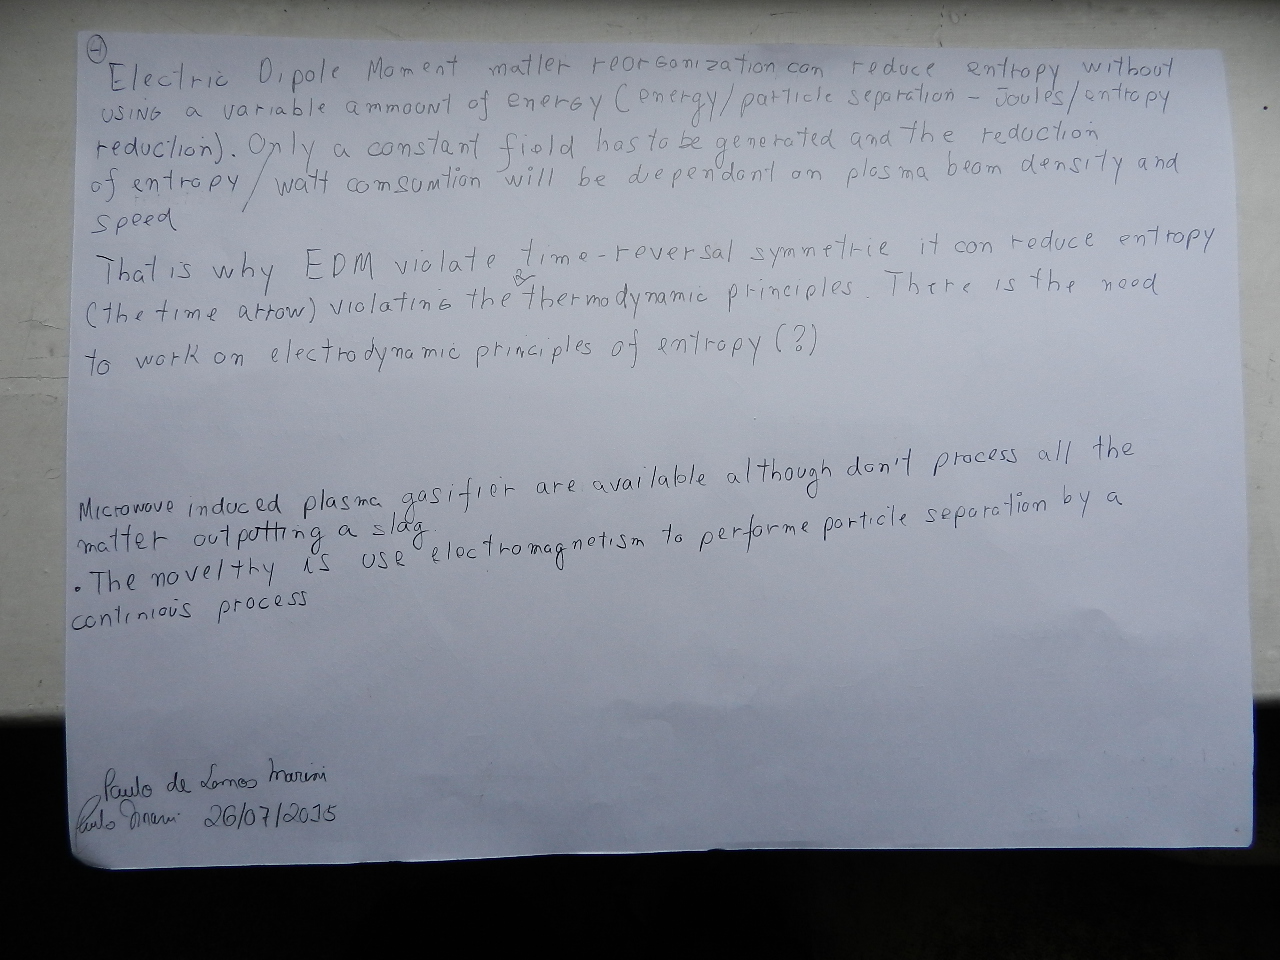 1
Electric Dipole Moment matter reorganization can reduce entropy without
using a variable ammount of energy (energy/particle separation - Joules/entropy
reduction). Only a constant field has to be generated and the reduction
of entropy/watt comsumtion will be dependant on plasma beam density and
speed
That is why EDM violate time-reversal symmetrie it can reduce entropy
(the time arrow) violating the thermodynamic principles. There is the need
to work on electrodynamic principles of entropy (?)
Microwave induced plasma gasifier are available although don't process all the
matter outputting a slag.
• The novelthy is use electromagnetism to performe particle separation by a
continious process
Paulo de Lemos Marini
Paulo Marini 26/07/2015